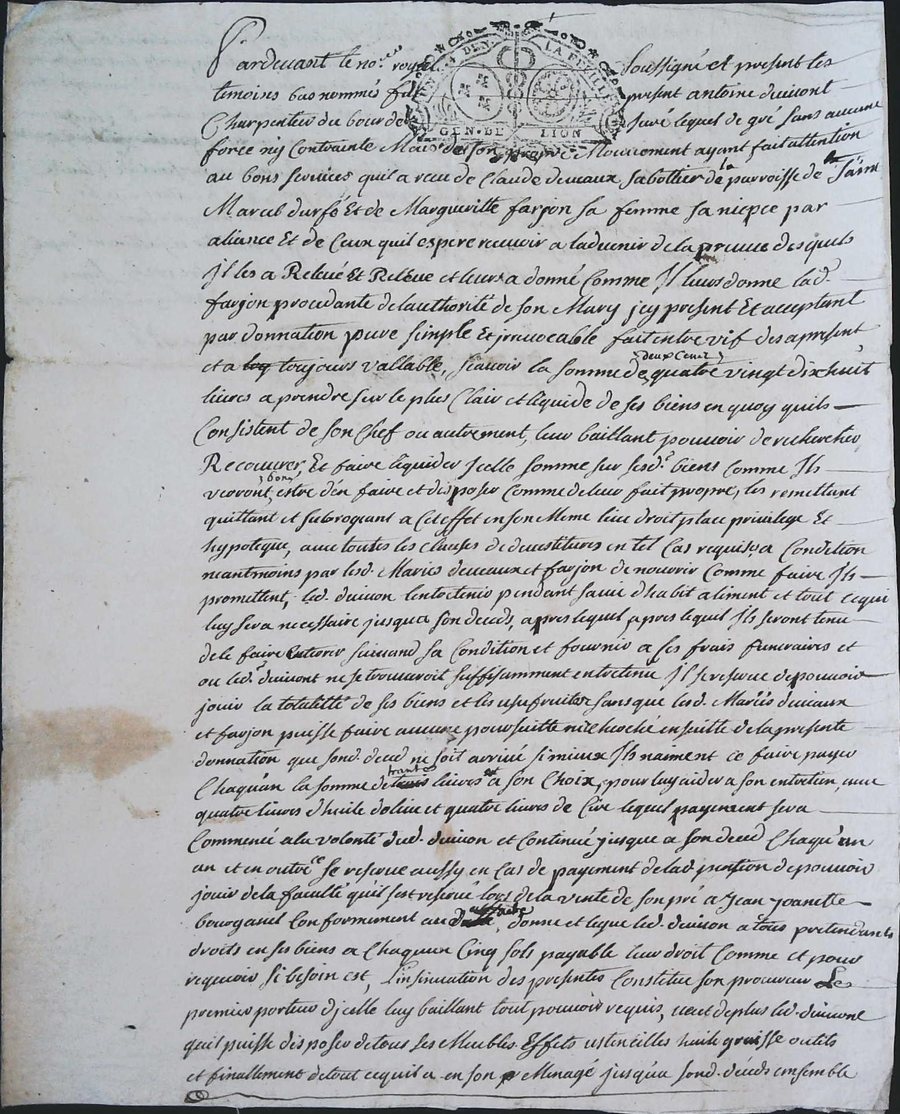 Pardevant le no.re royal soussigné et present les
temoins bas nommés fu present antoine duivont
Charpentier du bour de seüré lequel de gré sans aucune
force ny Contrainte Mais de son propre Mouvement ayant fait attention
au bons services quil a receu de Claude deveaux sabottier de la parroisse de saint
Marcel durfé Et de Margueritte farjon sa femme sa niepce par
aliance Et de Ceux quil espere recevoir a ladvenir de la preuve desquels
Jl les a Relevé Et Releve et leur a donné Comme Jl leurs donne lad.
farjon procedante de lauthorité de son Mary jcy present Et acceptant
par donnation pure simple Et jrrevocable fait entre vif des apresent
et a toujours vallable, scavoir la somme de deux Cent quatre vingt dix huit
livres a prendre sur le plus Clair et liquide de ses biens en quoy quils
Consistent de son Chef ou autrement, leur baillant pouvoir de rechercher
Recouvrer, Et faire liquider jcelle somme sur sesd.t biens Comme Jls
verront bon estre den faire et disposer Comme de leur fait propre, les remettant
quittant et subrogeant a Cet effet en son Meme lieu droit place privilege Et
hypoteque, avec toutes les Clauses de devestitures en tel Cas requises a Condition
neantmoins par lesd. Mariés deveaux et farjon de nourrir Comme faire Jls
promettent, led. duivon lentretenir pendant sa vie dhabit aliment et tout cequi
luy sera necessaire jusqua son deced, apres lequel apres lequel Jls seront tenu
de le faire enterrer suivand sa Condition et fournir a ses frais funeraires et
ou led.t duivont ne se trouveroit suffisamment entretenu Jl se reserve de pouvoir
jouir la totalitté de ses biens et les usefruiter sans que lesd. Mariés deveaux
et farjon puisse faire aucune poursuitte ni en suitte de la presente
donnation que sond. deced ne soit arrivé si mieux Jls naiment ce faire payer
Chaqu'an la somme de trante livres a son Choix, pour luy aider a son entretien, avec
quatre livres d'huile dolive et quatre livres de Cire lequel payement sera
Commencé a la volonté dud. duivon et Continué jusque a son deced Chaqu'un
an et en outre se reserve aussy en Cas de payement de lad. pention de pouvoir
jouir de la faculté quil sest reservé lors de la vente de son pré a Jean joanette
bourganel Conformement au , donne et legue led. duivon a tous pretendants
droits en ses biens a Chaquun Cinq sols payable leur droit Comme et pour
requerir si besoin est, L'insinuation des presentes Constitue son procureur Le
premier porteur djcelle luy baillant tout pouvoir requis, veut de plus led. duivont
quil puisse disposer de tous ses Meubles Effets ustencilles huile graisse outils
et finallement de tout cequil a en son Menagé jusqua sond. deceds ensemble
GEN. DE LION